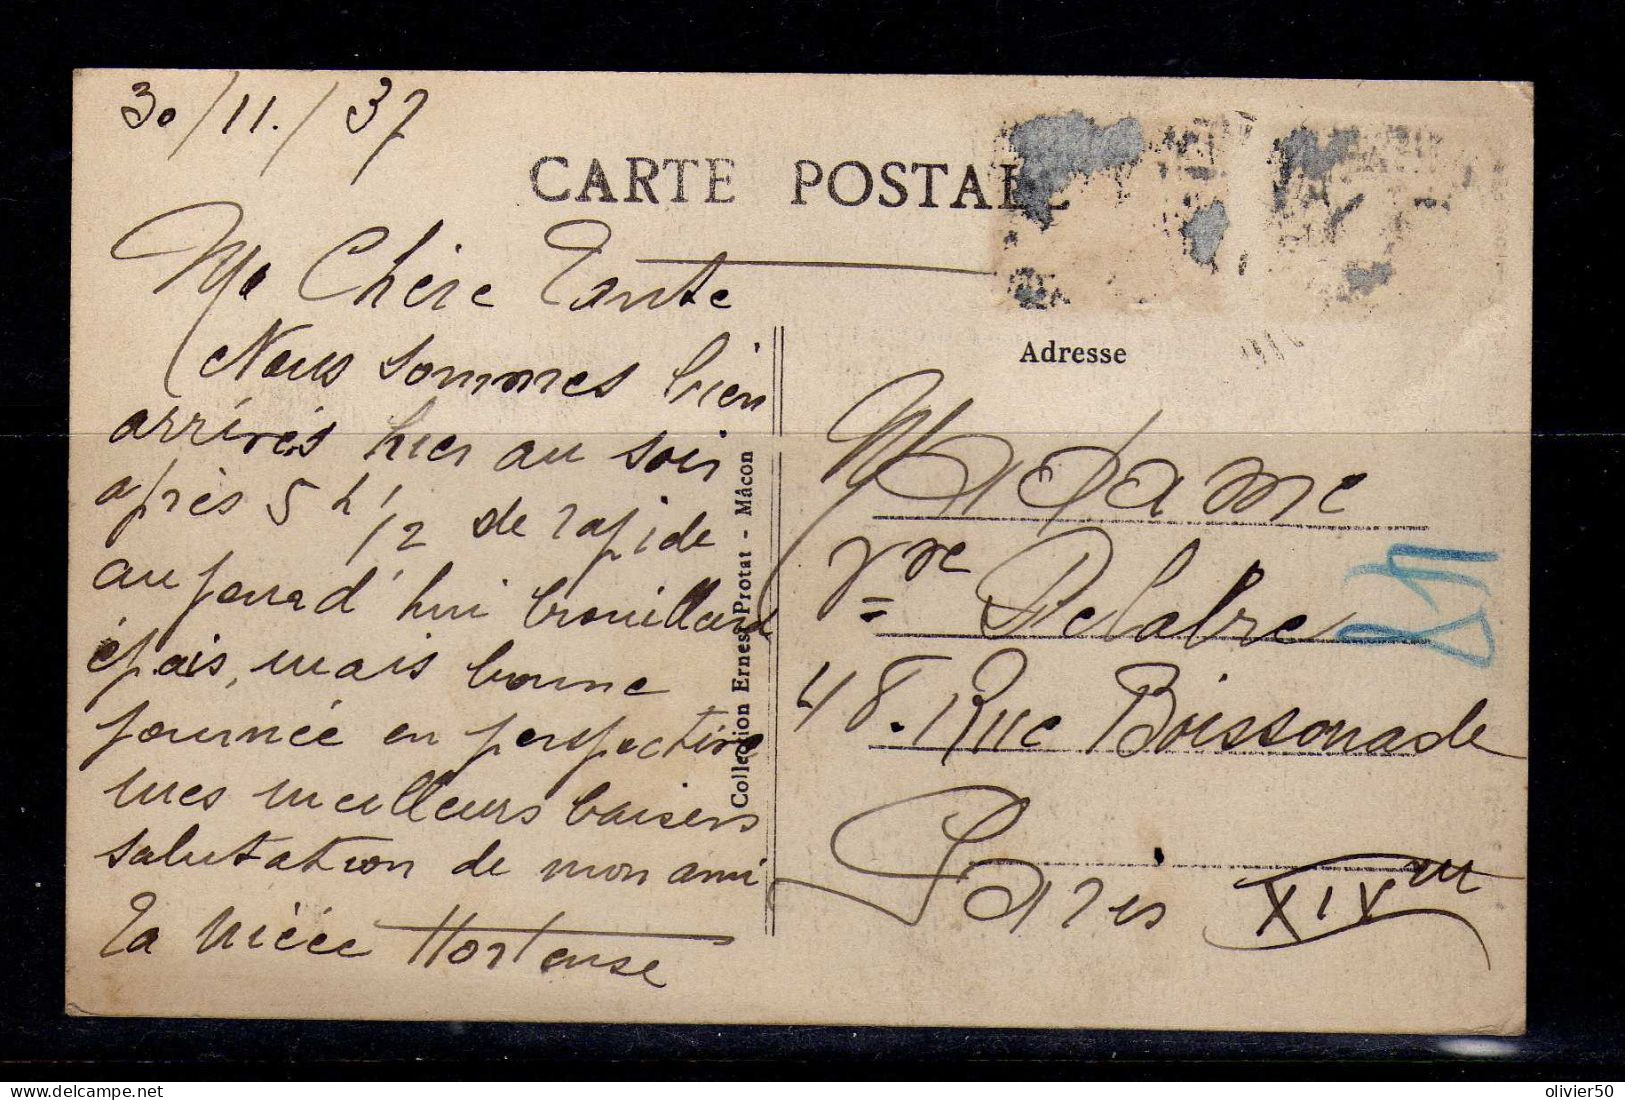 30/11./37
CARTE POSTALE
Ma Chère Tante
Nous sommes bien
arrivés hier au soir
après 5 h 1/2 de rapide
aujourd'hui brouillard
épais, mais bonne
journée en perspective
mes meilleurs baisers
salutation de mon ami
ta nièce Hortense
Collection Ernest Protat - Mâcon
Adresse
Madame
Vve Delabre
48. Rue Boissonade
Paris XIVm
delcampe.net
olivier50